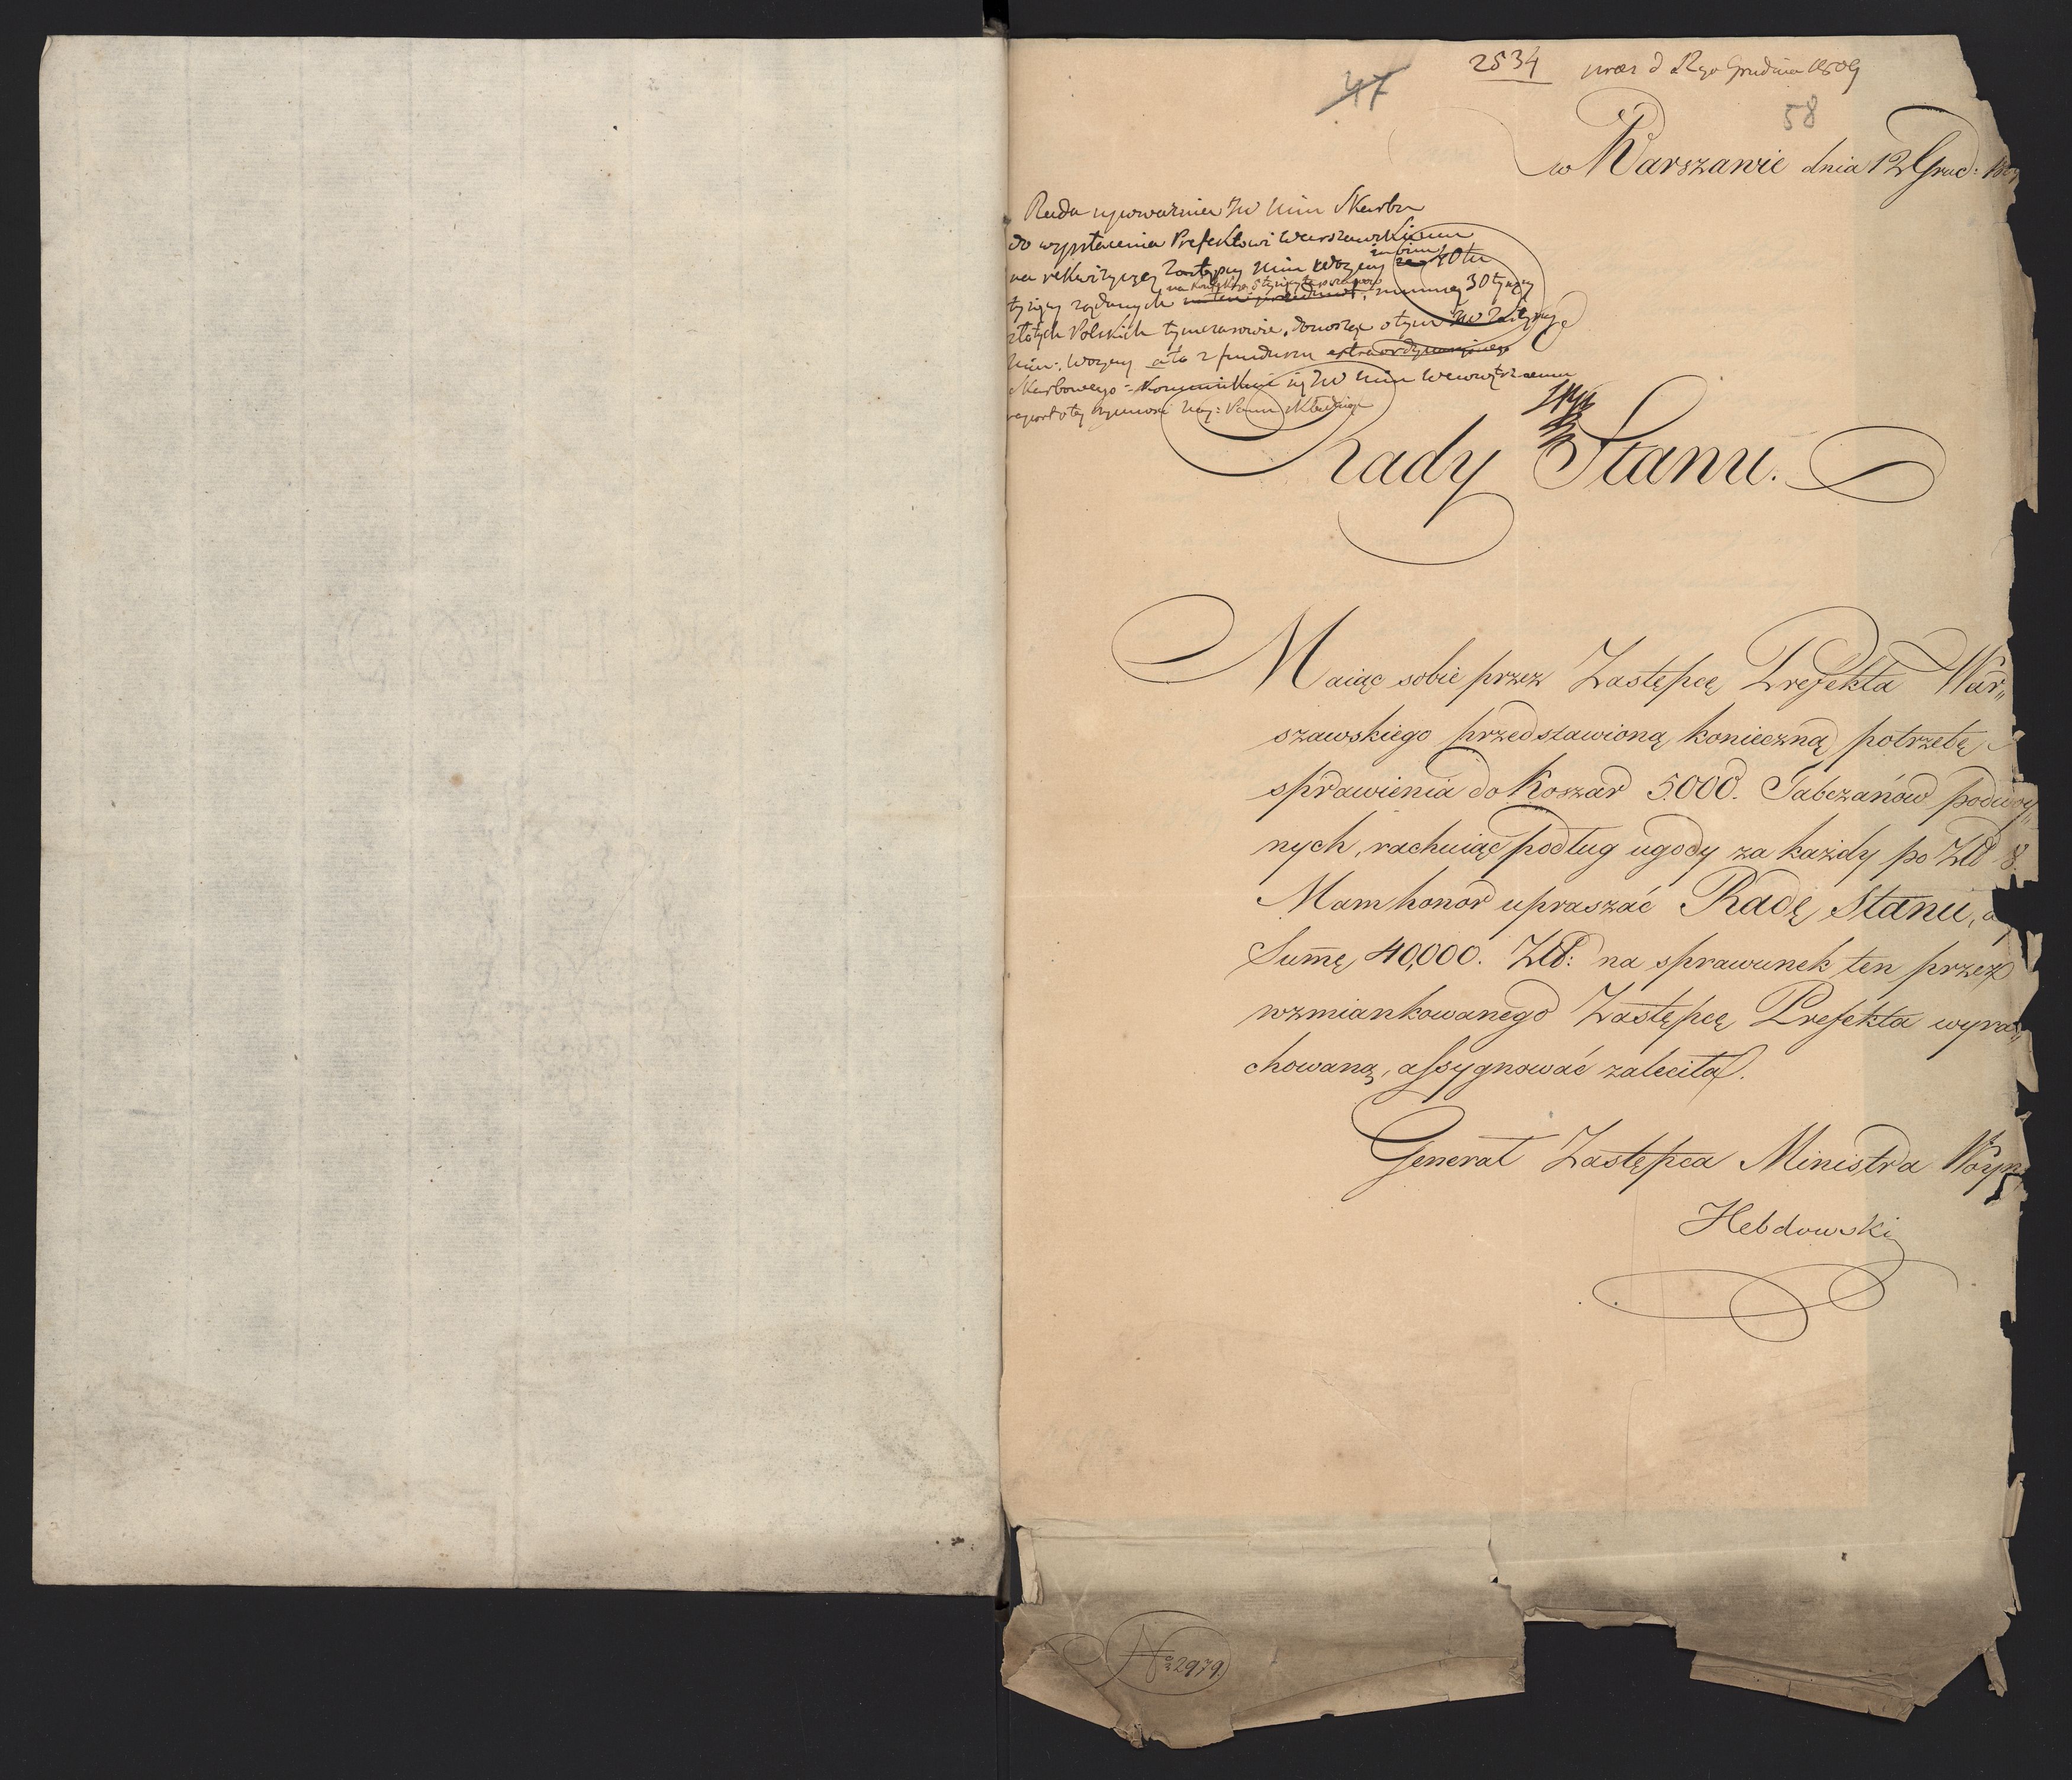 47
2534
58
w Warszawie dnia 12 Grud:
Rada upoważnia JW Min Skarbu
do wypłacenia Prefektowi Warszawskiemu
na rekwizycyę Zastępcy Min Woyny 40tu
tysięcy żądanych summę 30 tysięcy
złotych Polskich tymczasowie, donosząc o tym JW Zastępcy
Min: Woyny a to z funduszu extraordynaryinego
Skarbowego
Rady Stanu.
Maiąc sobie przez Zastępcę Prefekta War„
szawskiego przedstawioną konieczną potrzebę
sprawienia do Koszar 5000. Tabczanów podwoy„
nych, rachuiąc podług ugody za każdy po Złł 8.
Mam honor upraszać Radę Stanu, a
Summę 40,000. Złł: na sprawunek ten przez
wzmiankowanego Zastępcę Prefekta wyra„
chowaną, assygnować zaleciła.
Generał Zastępca Ministra Woyny
Hebdowski
No 2979.